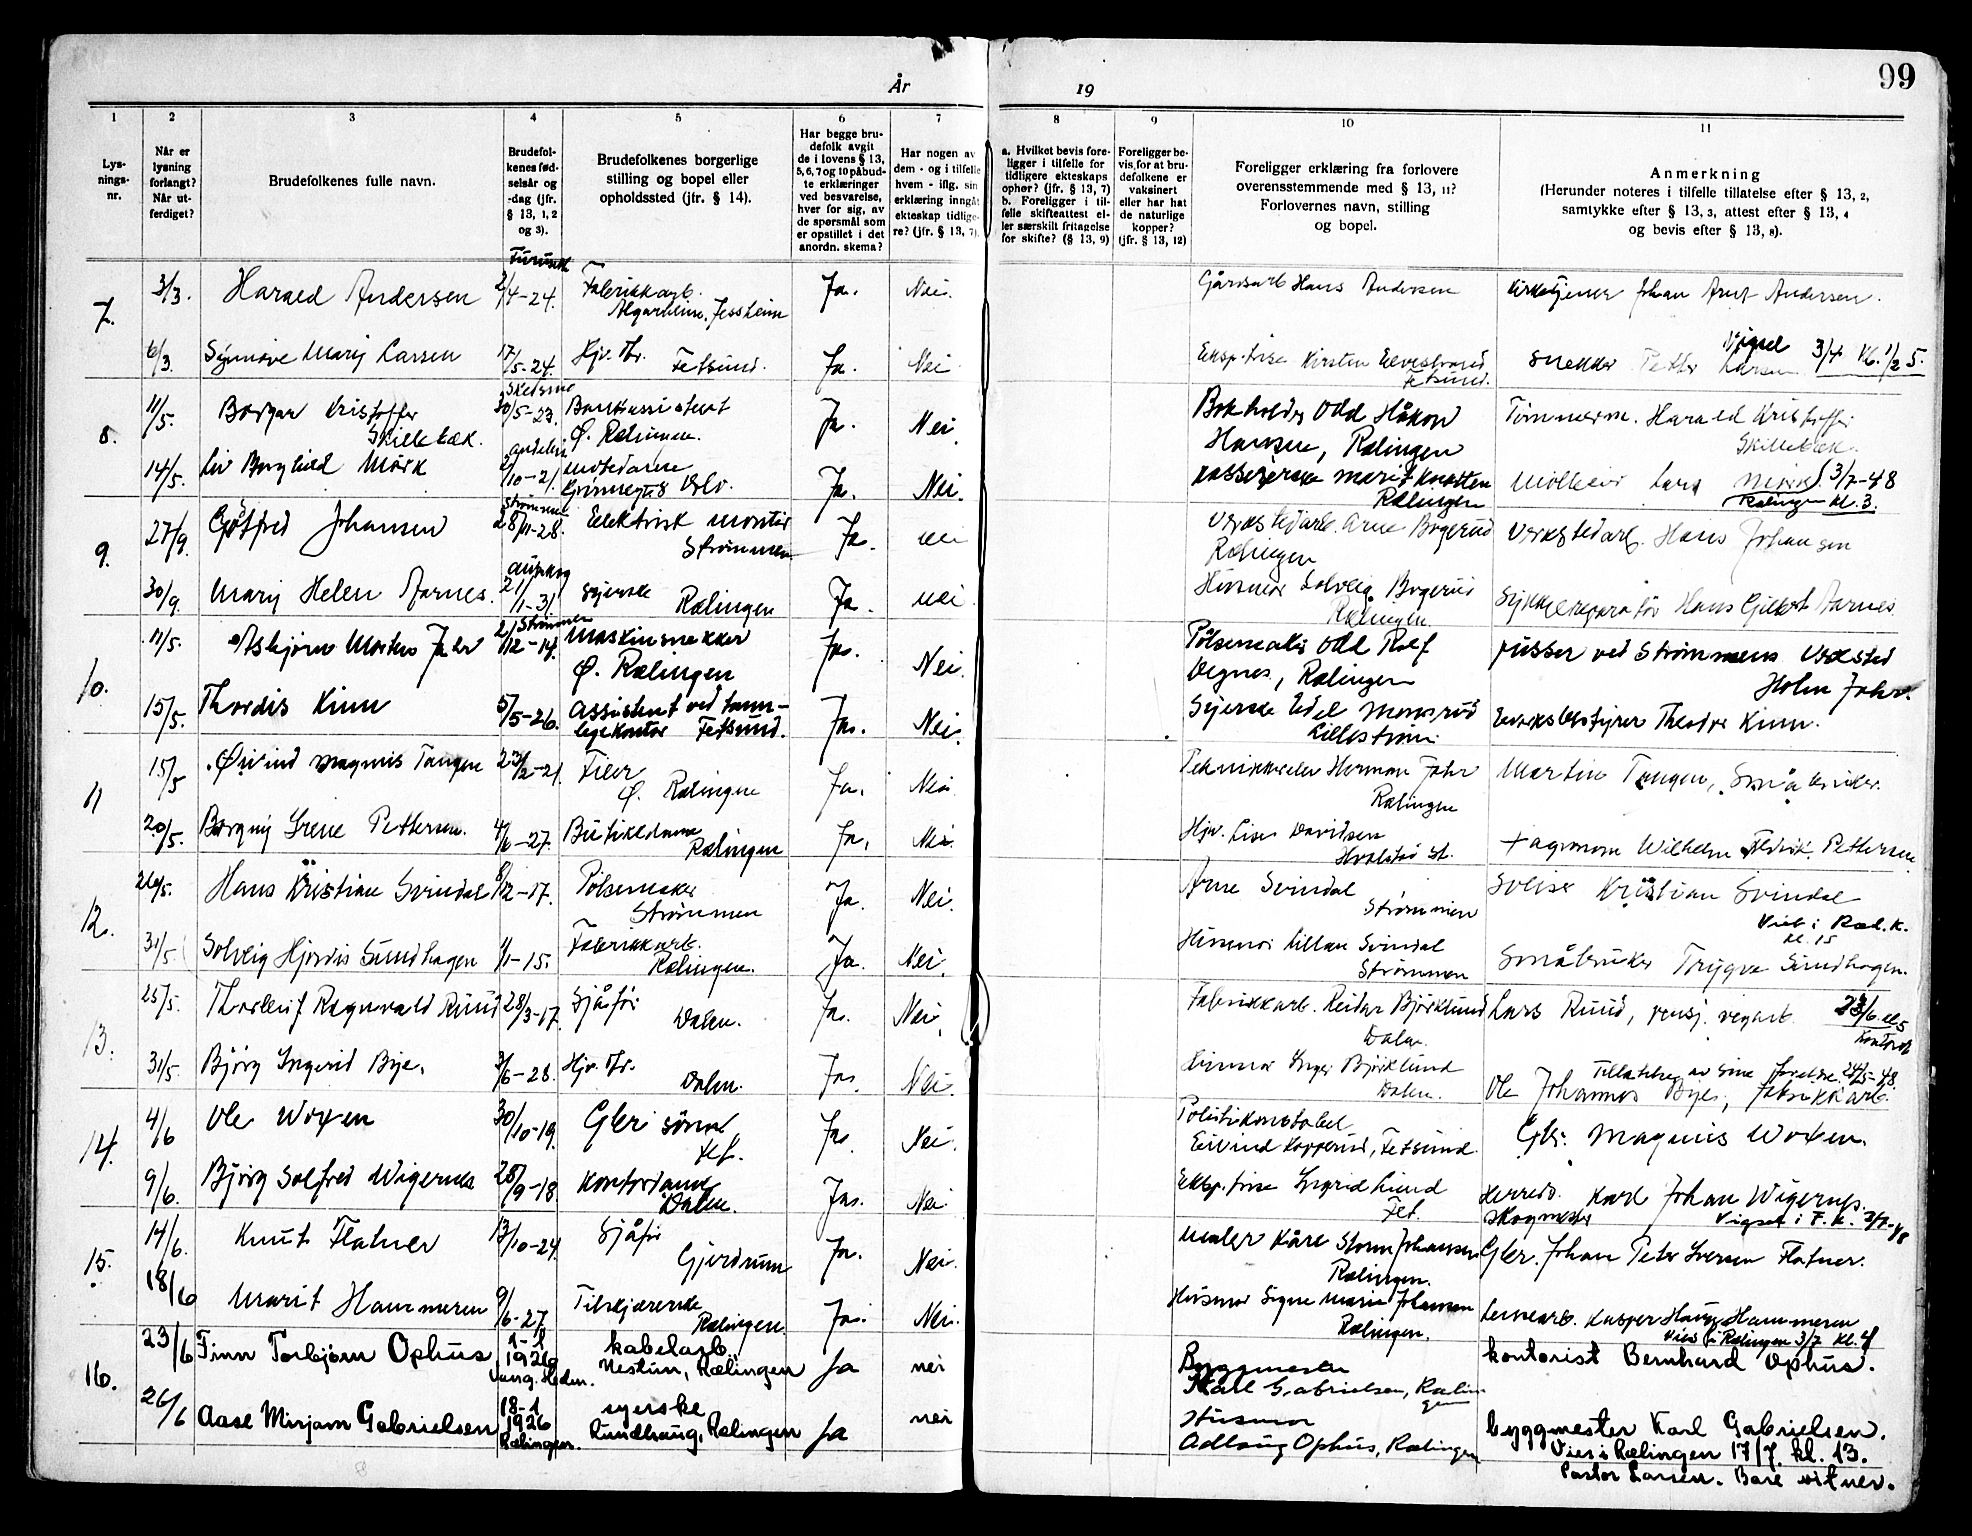 År
19
99
1
Lys-
nings-
nr.
2
Når er
lysning
forlangt?
Når ut-
ferdiget?
3
Brudefolkenes fulle navn.
4
Brudefol-
kenes fød-
selsår og
-dag (jfr.
§ 13, 1, 2
og 3).
5
Brudefolkenes borgerlige
stilling og bopel eller
opholdssted (jfr. § 14).
6
Har begge bru-
defolk avgit
de i lovens § 13,
5, 6, 7 og 10 påbud-
te erklæringer
ved besvarelse,
hver for sig, av
de spørsmål som
er opstillet i det
anordn. skema?
7
Har nogen av
dem - og i tilfelle
hvem - iflg. sin
erklæring inngåt
ekteskap tidlige-
re? (jfr. § 13, 7).
8
a. Hvilket bevis fore-
ligger i tilfelle for
tidligere ekteskaps
ophør? (jfr. § 13, 7)
b. Foreligger i til-
felle skifteattest el-
ler særskilt fritagelse
for skifte? (§ 13, 9)
9
Foreligger be-
vis for at bru-
defolkene er
vaksinert
eller har hat
de naturlige
kopper?
(jfr. § 13, 12)
10
Foreligger erklæring fra forlovere
overensstemmende med § 13, 11?
Forlovernes navn, stilling
og bopel.
11
Anmerkning
(Herunder noteres i tilfelle tillatelse efter § 13, 2,
samtykke efter § 13, 3, attest efter § 13, 4
og bevis efter § 13, 8).
7. 3/3. Harald Andersen 2/4-24. Fabrikkarb. Ja. Nei. Gårdsarb Hans Andersen Kirketjener Johan Arnt Andersen.
Algarheim, Jessheim
6/3. Synnøve Marij Larsen 17/5-24. Hjv. Dtr. Fetsund. Ja. Nei Eksp.trise Kirsten Fetsund. Snekker Petter Larsen Vigsel 3/4 kl. 1/2 5.
8. 11/5. Borgar Kristoffer Skedsmo 30/5-23. Bankassistent Ja. Nei. Bokholder Odd Håkon Tømmerm. Harald Kristoffer
Skillebæk. Ø. Rælingen. Hansen, Rælingen Skillebæk.
14/5. Liv Borghild Mørk 2/10-21. Oslo. Ja. Nei. Kasserjerske Marit Rælingen Lars Mørk 3/7-48
Rælingen kl. 3.
9. 27/9. Gøtfred Johansen Strømmen 28/11-28. Elektrisk montør Ja. nei Verkstedarb. Arne Bogerud Verkstedarb. Hans Johansen
Strømmen Rælingen
30/9. Marij Helen Aarnes. 21/1-31. syerske Rælingen Ja. nei Husmor Solveig Bogerud Sykkelreparatør Hans Gilbert Aarnes
Rælingen.
10. 11/5. Asbjørn Morten Jahr Strømmen 21/12-14. Maskinsnekker Ja. Nei. Pølsemaker Odd Rolf pusser ved Strømmens Værksted
Ø. Rælingen Vegnes, Rælingen Holm Jahr.
15/5. Thordis Kinn 5/5-26. Assistent ved tann- Ja. Nei. Syerske Edel Monsrud Everksbestyrer Theodor Kinn.
legekontor Fetsund. Lillestrøm
11 15/5 Øivind Magnus Tangen 23/2-21. Filer Ja. Nei. Herman Jahr Martin Tangen, Småbruker.
Ø. Rælingen Rælingen
20/5. Borgny Irene Pettersen. 4/6-27. Butikkdame Ja. Nei. Hjv. Lise Davidsen Wilhelm Fredrik Pettersen
Rælingen Hvalstad St.
12. 26/5. Hans Kristian Svindal 8/12-17. Pølsemaker Ja. Nei. Arne Svindal Kristian Svindal
Strømmen Strømmen Viet i Ræl. k.
kl. 15
31/5 Solveig Hjørdis Sundhagen 1/1-15. Fabrikkarb. Ja. Nei. Husmor Lillian Svindal Småbruker Trygve Sundhagen.
Rælingen. Strømmen
13. 25/5. Thorleif Ragnvald Ruud 28/3-17. Sjåfør Dalen. Ja. Nei. Fabrikkarb. Reidar Bjørklund Lars Ruud, pensj. vegarb. 23/6. kl 5
Dalen. Kontoret
31/5. Bjørg Ingerid Bye. 3/6-28. Hjv. Dtr. Dalen. Ja. Nei. Husmor Inger Bjørklund Tillatelse av sine foreldre. 24/5-48.
Dalen. Ole Johannes Bye, fabrikkarb.
14. 4/6 Ole Woxen 30/10-19. Gbr. sønn Ja. Nei. Politikonstabel Gbr. Magnus Woxen.
Fet. Eivind Kopperud, Fetsund.
9/6. Bjørg Solfrid Wigernes 28/9-18. Kontordame Ja. Nei. Eksp.trise Ingrid Lund Herreds- Karl Johan Wigernes.
Dalen. Fet. skogmester Vigsel i F. k. 3/7-48
15. 14/6. Knut Flatner 13/10-24. Sjåfør Ja. Nei. Maler Kåre Storm Johansen Gbr. Johan Peter Iversen Flatner.
Gjerdrum Rælingen.
18/6 Marit Hammeren 9/6-27. Tilskjærerske Ja. Nei. Husmor Signe Marie Johansen Kasper Haug Hammeren
Rælingen. Rælingen. Vies i Rælingen 3/7 kl. 4
16. 23/6 Finn Torbjørn Ophus 1-1 1926 kabelarb. ja nei Byggmester kontorist Bernhard Ophus.
Nestun, Rælingen Karl Gabrielsen, Rælin-
gen
26/6 Aase Mirjam Gabrielsen 18-1 1926 syerske ja nei Husmor byggmester Karl Gabrielsen.
Rælingen. Rundhaug, Rælingen Adlaug Ophus, Rælingen Vies i Rælingen 17/7. kl. 13.
Pastor Larsen. Bare vitner.